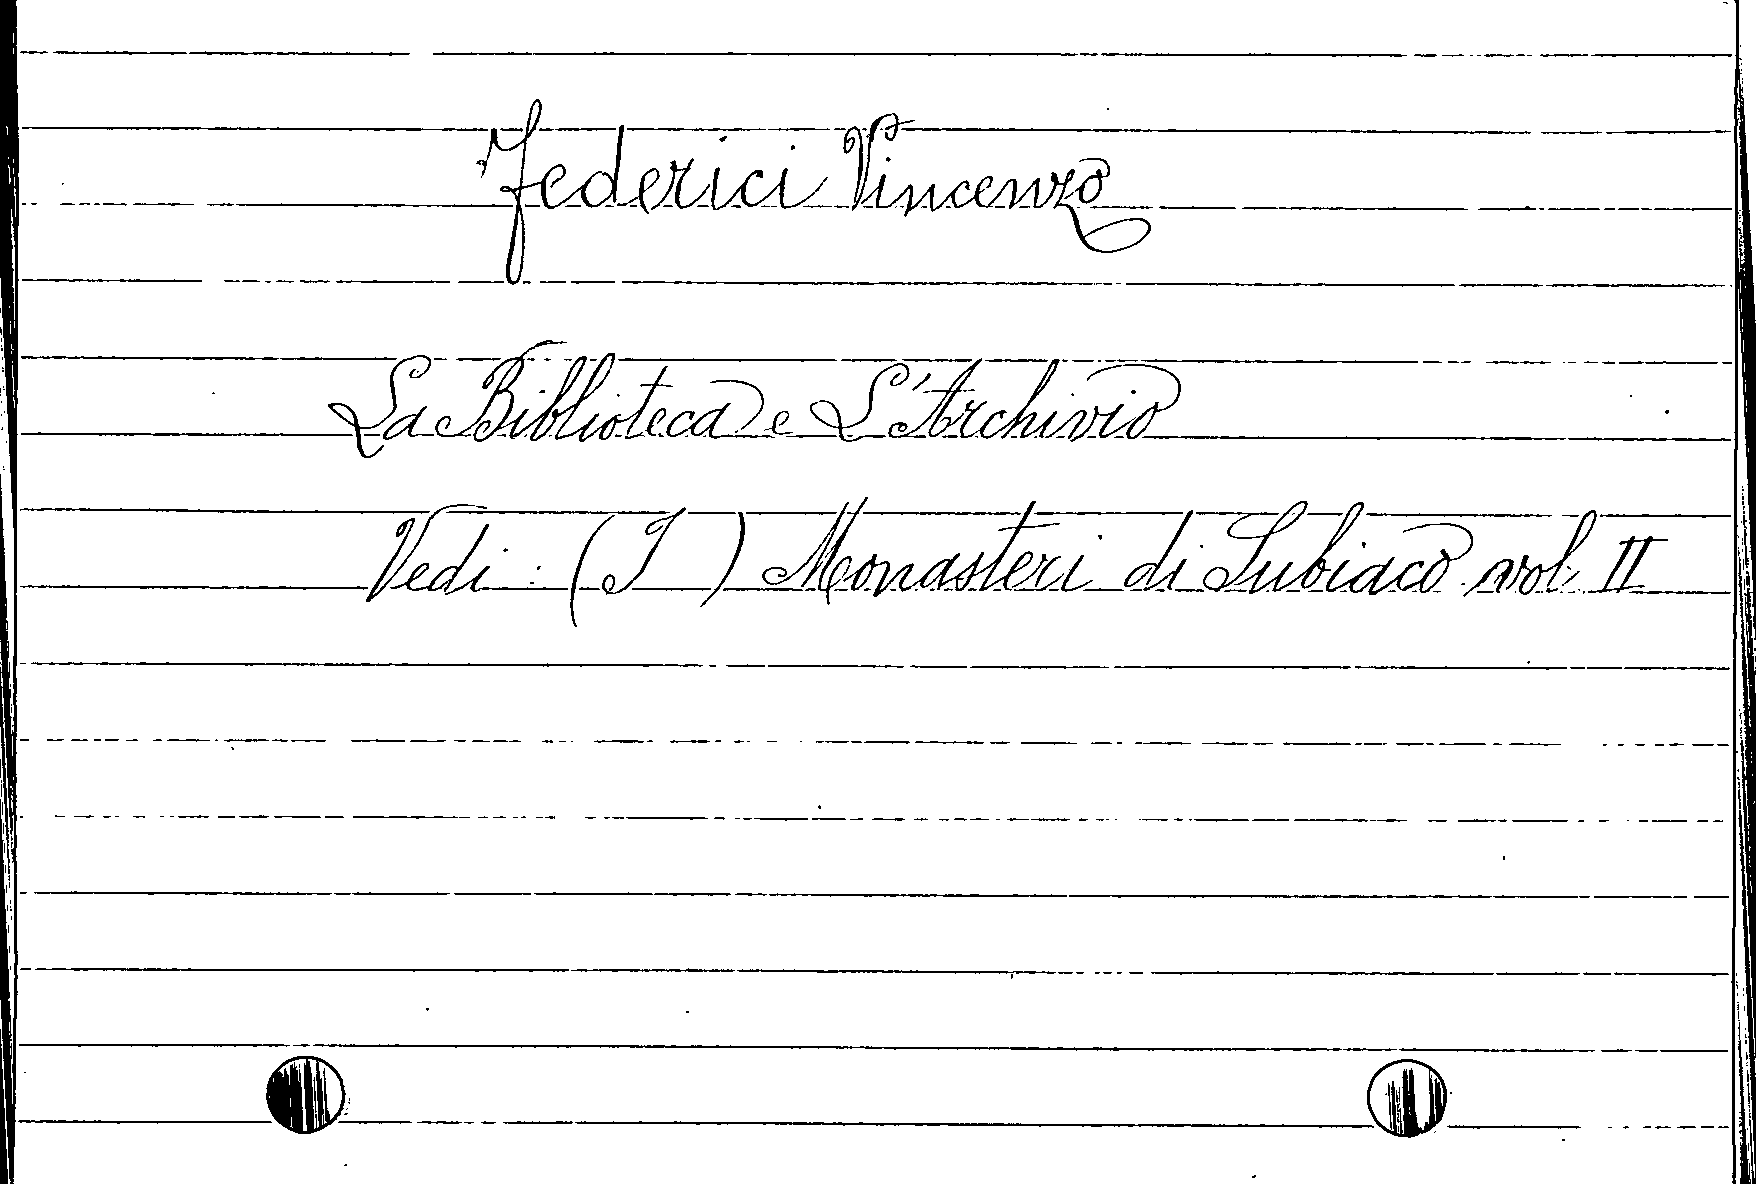 Federici Vincenzo
La Biblioteca e L'Archivio
Vedi: (I) Monasteri di Subiaco vol. II